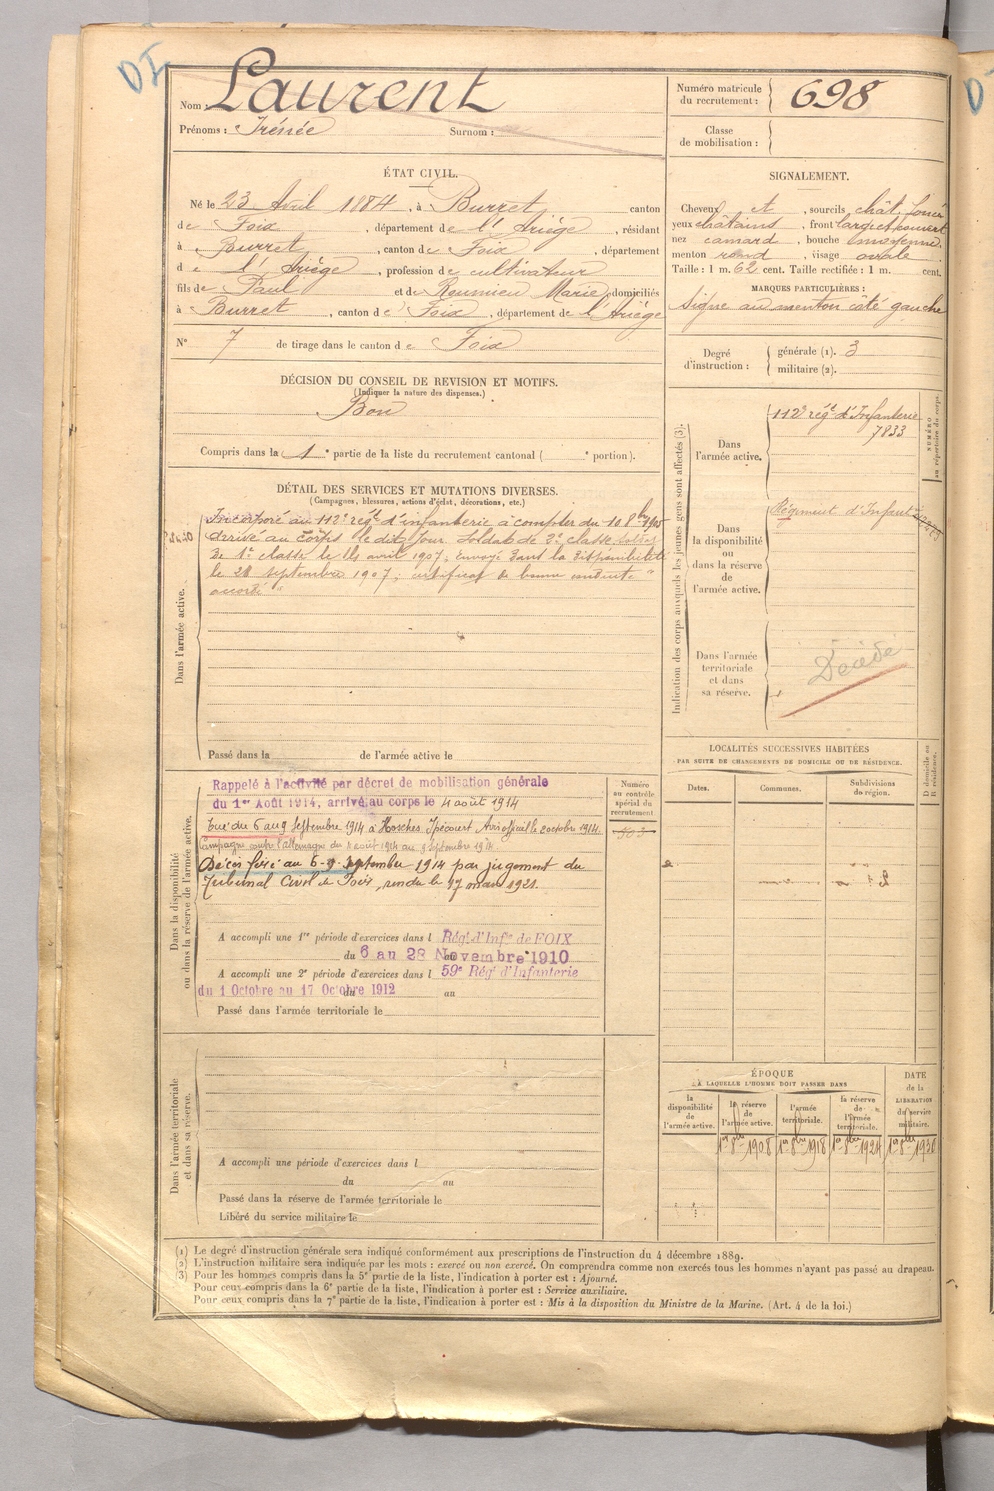 DI
Nom : Laurent
Prénoms : Irénée Surnom :
Numéro matricule du recrutement : 698
Classe de mobilisation :
ÉTAT CIVIL.
Né le 23 Avril 1884, à Burret canton
de Foix, département de l'Ariège, résidant
à Burret, canton de Foix, département
de l'Ariège, profession de cultivateur
fils de Paul et de Roumieu Marie, domiciliés
à Burret, canton de Foix, département de l'Ariège
N° 7 de tirage dans le canton de Foix
SIGNALEMENT.
Cheveux et, sourcils chât. foncé
yeux châtains, front large et couvert
nez camard, bouche moyenne,
menton rond, visage ovale
Taille : 1 m. 62 cent. Taille rectifiée : 1 m. cent.
MARQUES PARTICULIÈRES :
Signe au menton côté gauche
Degré d'instruction :
générale (1). 3
militaire (2).
DÉCISION DU CONSEIL DE REVISION ET MOTIFS.
(Indiquer la nature des dispenses.)
Bon
Compris dans la 1e partie de la liste du recrutement cantonal ( e portion).
DÉTAIL DES SERVICES ET MUTATIONS DIVERSES.
(Campagnes, blessures, actions d'éclat, décorations, etc.)
Dans l'armée active.
Incorporé au 112e régt d'infanterie à compter du 10 8bre 1905
arrivé au corps le dit jour. Soldat de 2e classe soldat
de 1e classe le avril 1907; Envoyé dans la disponibilité
le 28 septembre 1907; certificat de bonne conduite "
accordé "
Passé dans la de l'armée active le
Indication des corps auxquels les jeunes gens sont affectés (3).
NUMÉRO au répertoire du corps.
Dans l'armée active.
112e régt d'Infanterie
7833
Dans la disponibilité ou dans la réserve de l'armée active.
Régiment d'Infant
Dans l'armée territoriale et dans sa réserve.
Décédé
LOCALITÉS SUCCESSIVES HABITÉES
PAR SUITE DE CHANGEMENTS DE DOMICILE OU DE RÉSIDENCE.
Dates. Communes. Subdivisions de région. D domicile ou R résidence.
Dans la disponibilité ou dans la réserve de l'armée active.
Numéro au contrôle spécial du recrutement
Rappelé à l'activité par décret de mobilisation générale
du 1er Août 1914, arrivé au corps le 4 août 1914
Tué du 6 au 9 Septembre 1914 à Ipécourt Avis officiel le 2 octobre 1914.
Campagne contre l'Allemagne du 4 août 1914 au 9 septembre 1914.
Décès fixé au 6-9 septembre 1914 par jugement du
Tribunal Civil de Foix, rendu le 17 mars 1921.
A accompli une 1re période d'exercices dans l Rég. d'Inf.ie de FOIX
du 6 au 28 Novembre 1910
A accompli une 2e période d'exercices dans l 59e Rég. d'Infanterie
du 1 Octobre au 17 Octobre 1912 au
Passé dans l'armée territoriale le
ÉPOQUE
À LAQUELLE L'HOMME DOIT PASSER DANS
la disponibilité de l'armée active.
la réserve de l'armée active.
l'armée territoriale.
la réserve de l'armée territoriale.
DATE de la LIBÉRATION du service militaire.
1er 8bre 1908 1er 8bre 1918 1er 8bre 1924 1er 8bre 1930
Dans l'armée territoriale et dans sa réserve.
A accompli une période d'exercices dans l
du au
Passé dans la réserve de l'armée territoriale le
Libéré du service militaire le
(1) Le degré d'instruction générale sera indiqué conformément aux prescriptions de l'instruction du 4 décembre 1889.
(2) L'instruction militaire sera indiquée par les mots : exercé ou non exercé. On comprendra comme non exercés tous les hommes n'ayant pas passé au drapeau.
(3) Pour les hommes compris dans la 5e partie de la liste, l'indication à porter est : Ajourné.
Pour ceux compris dans la 6e partie de la liste, l'indication à porter est : Service auxiliaire.
Pour ceux compris dans la 7e partie de la liste, l'indication à porter est : Mis à la disposition du Ministre de la Marine. (Art. 4 de la loi.)